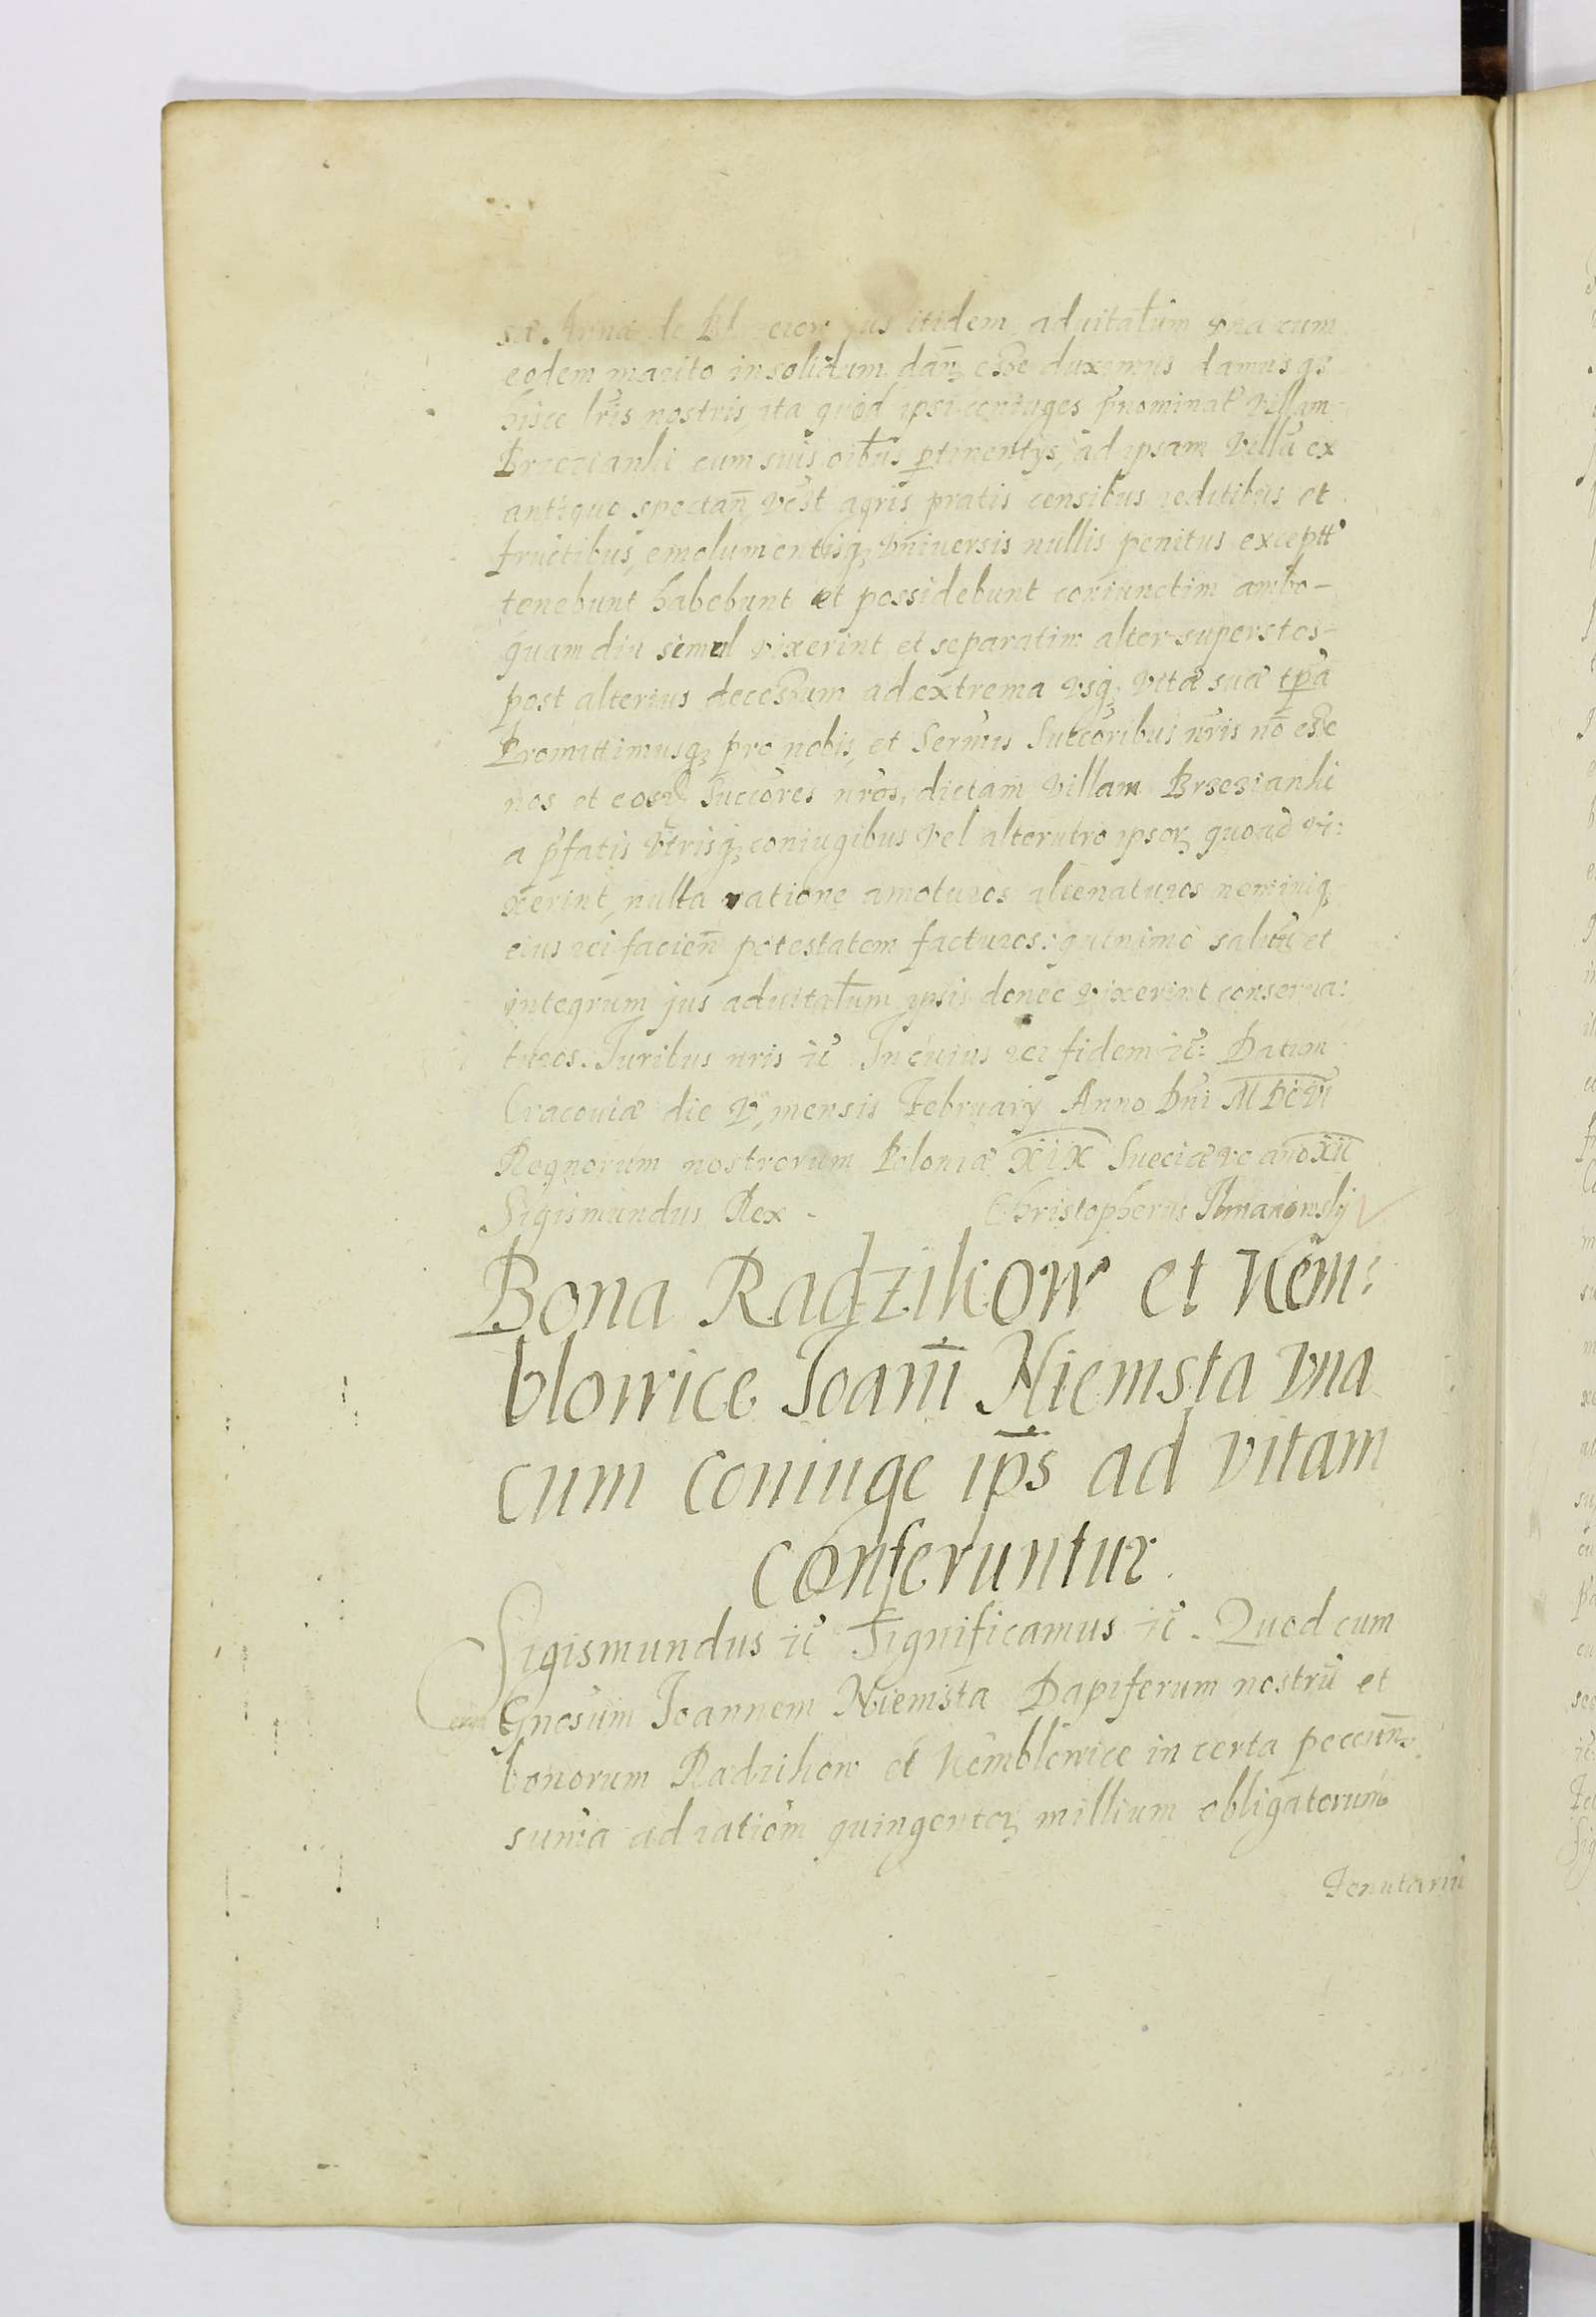 sæ. Annæ de jus itidem aduitalũm vna cum
eodem marito insolidum dan̄ esse duximus damus qȝ
hisce lr̃is nostris, ita quòd ipsi coniuges p̃nominat Villam
Brzezianki cum suis oib̃us ptinentijs, ad ipsam Villã ex
antiquo spectan̄ vt̃ est agris pratis censibus reditibus et
fructibus, emolumentisqȝ vniuersis nullis penitus exceptt
tenebunt habebunt et possidebunt coniunctim ambo-
quam diu simul vixerint et separatim alter superstes-
post alterius decessum ad extrema vsqȝ vitæ suæ tp̃a
Promittimusqȝ pro nobis, et Serm̃is Succoribus nr̃is nõ esse
nos et Succores nros, dictam Villam Brzezianki
a p̃fatis vtrisqȝ coniugibus vel alterutro ipsorȝ quoad vi:
xerint, nulla ratione amoturos alienaturos neminiqȝ
eius rei facien̄ potestatem facturos: quinimò saluũ et
integrum jus aduitalũm ipsis donec vixerint conserua:
turos. Juribus nris ic̃ In cuius rei fidem ic̃: Datum
Cracouiæ die V, mensis February Anno Dn̄i MDCVI
Regnorum nostrorum Poloniæ XIX Sueciæ vo año XII
Sigismundus Rex - Christopherus
Bona Radzikow et Kem:
blowice Joanñi Niemsta vna
cum coniuge ip̃s ad vitam
conferuntur.
Sigismundus ic̃ Significamus ic̃. Quod cum
Gnosum Joannem Niemsta Dapiferum nostrũ et
bonorum Radzikow et Kemblowice in certa peccun̄
sum̃a ad ratiom quingentorȝ millium obligatorum
Tenutariũ